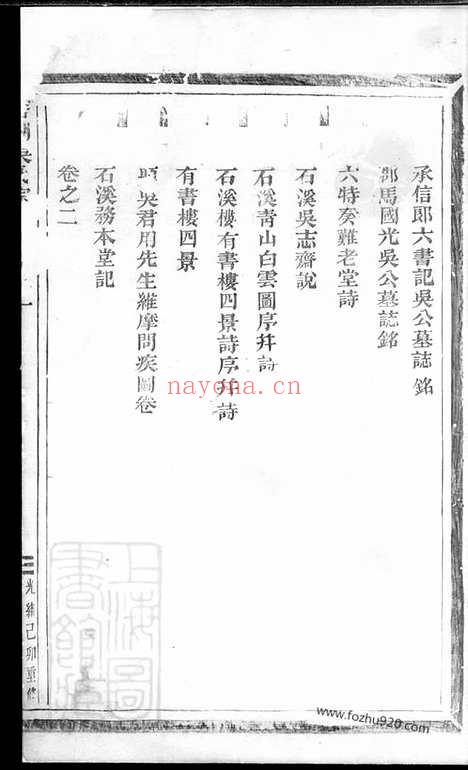 承信郎六書記吳公墓誌銘
馬國光吳公墓誌銘
六特奏難老堂詩
石溪吳志齋說
石溪青山白雲圖序并詩
石溪樓有書樓四景詩序并詩
有書樓四景
吳君用先生維摩問疾圖卷
石溪務本堂記
卷之二
光緒己卯重修
nayona.cn
上海圖書館藏
www.fozhu920.com